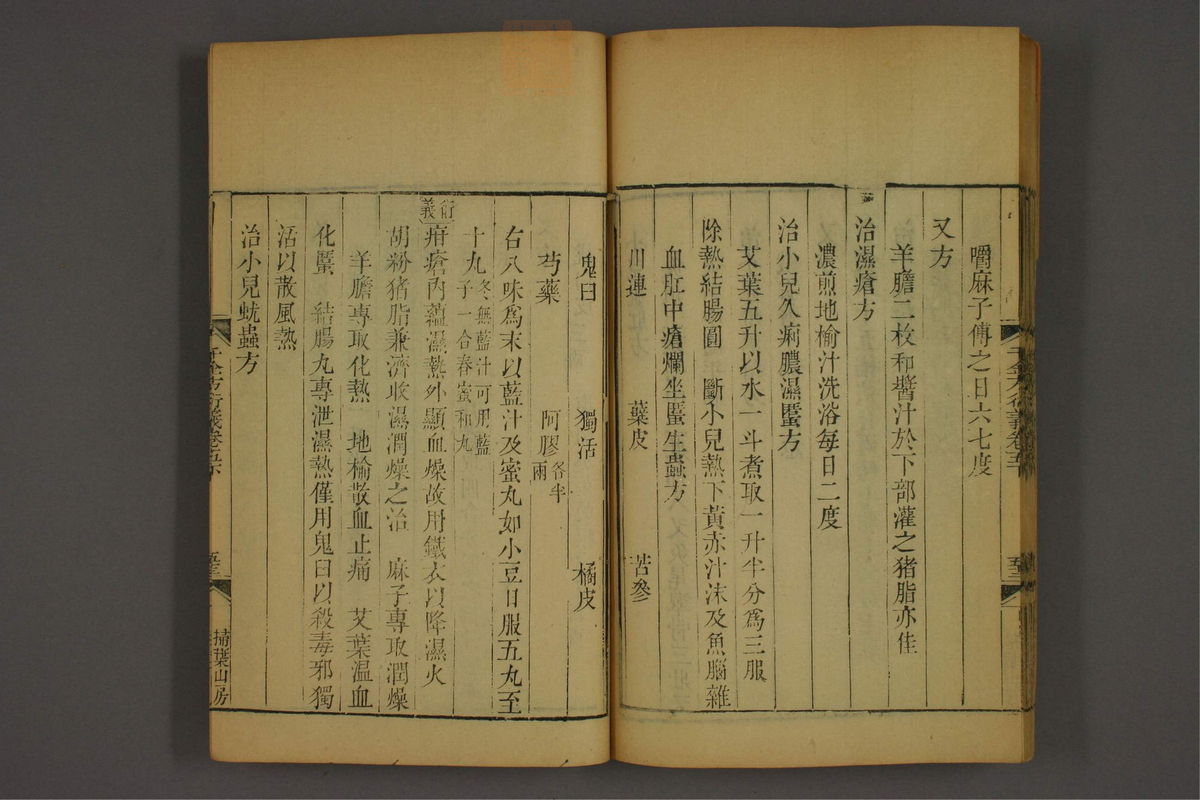 嚼麻子傅之日六七度
又方
羊膽二枚和醬汁於下部灌之猪脂亦佳
治濕瘡方
濃煎地榆汁洗浴每日二度
治小兒久痢膿濕䘌方
艾葉五升以水一斗煮取一升半分爲三服
除熱結腸圓 斷小兒熱下黃赤汁沫及魚腦雜
血肛中瘡爛坐䘌生蟲方
川連 蘗皮 苦參
鬼臼 獨活 橘皮
芍藥 阿膠各半兩
右八味爲末以藍汁及蜜丸如小豆日服五丸至
十丸冬無藍汁可用藍子一合舂蜜和丸
衍義
疳瘡內蘊濕熱外顯血燥故用鐵衣以降濕火
胡粉猪脂兼濟收濕潤燥之治 麻子專取潤燥
羊膽專取化熱 地榆散血止痛 艾葉温血
化䘌 結腸丸專泄濕熱僅用鬼臼以殺毒邪獨
活以散風熱
治小兒蚘蟲方
千金方衍義卷五下
掃葉山房